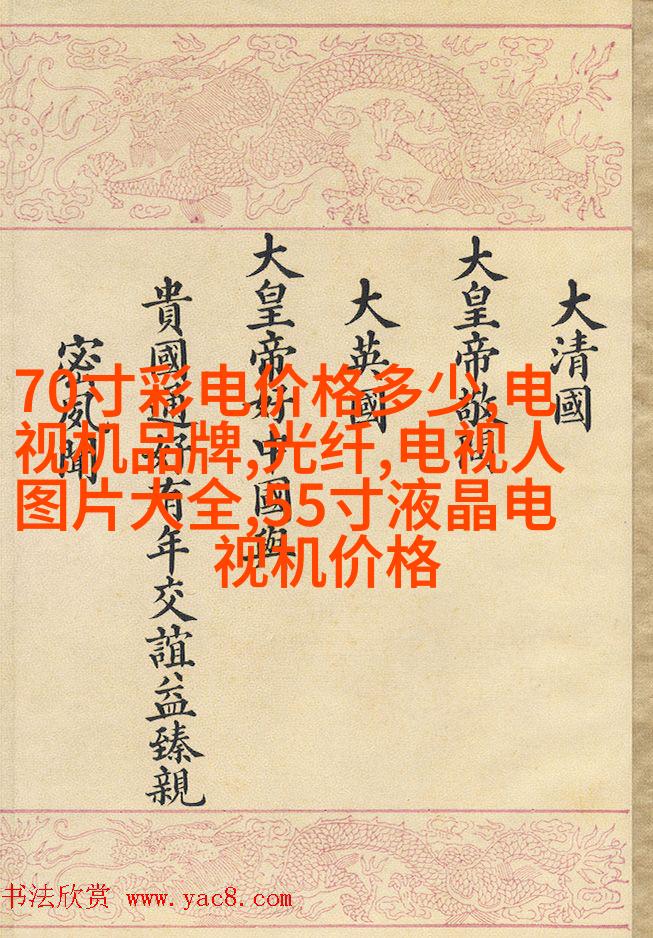 大清國
大皇帝敬問
大英國
大皇帝好中國與
貴國通好有年交誼益臻親
宻夙聞
70寸彩电价格多少,电
视机品牌,光纤,电视人
图片大全,55寸液晶电
视机价格
书法欣赏 www.yac8.com